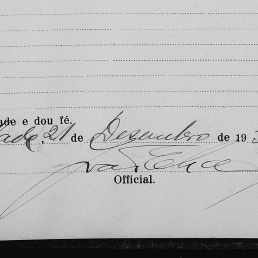 ade e dou fé.
ade, 21 de Dezembro de 193
Official.